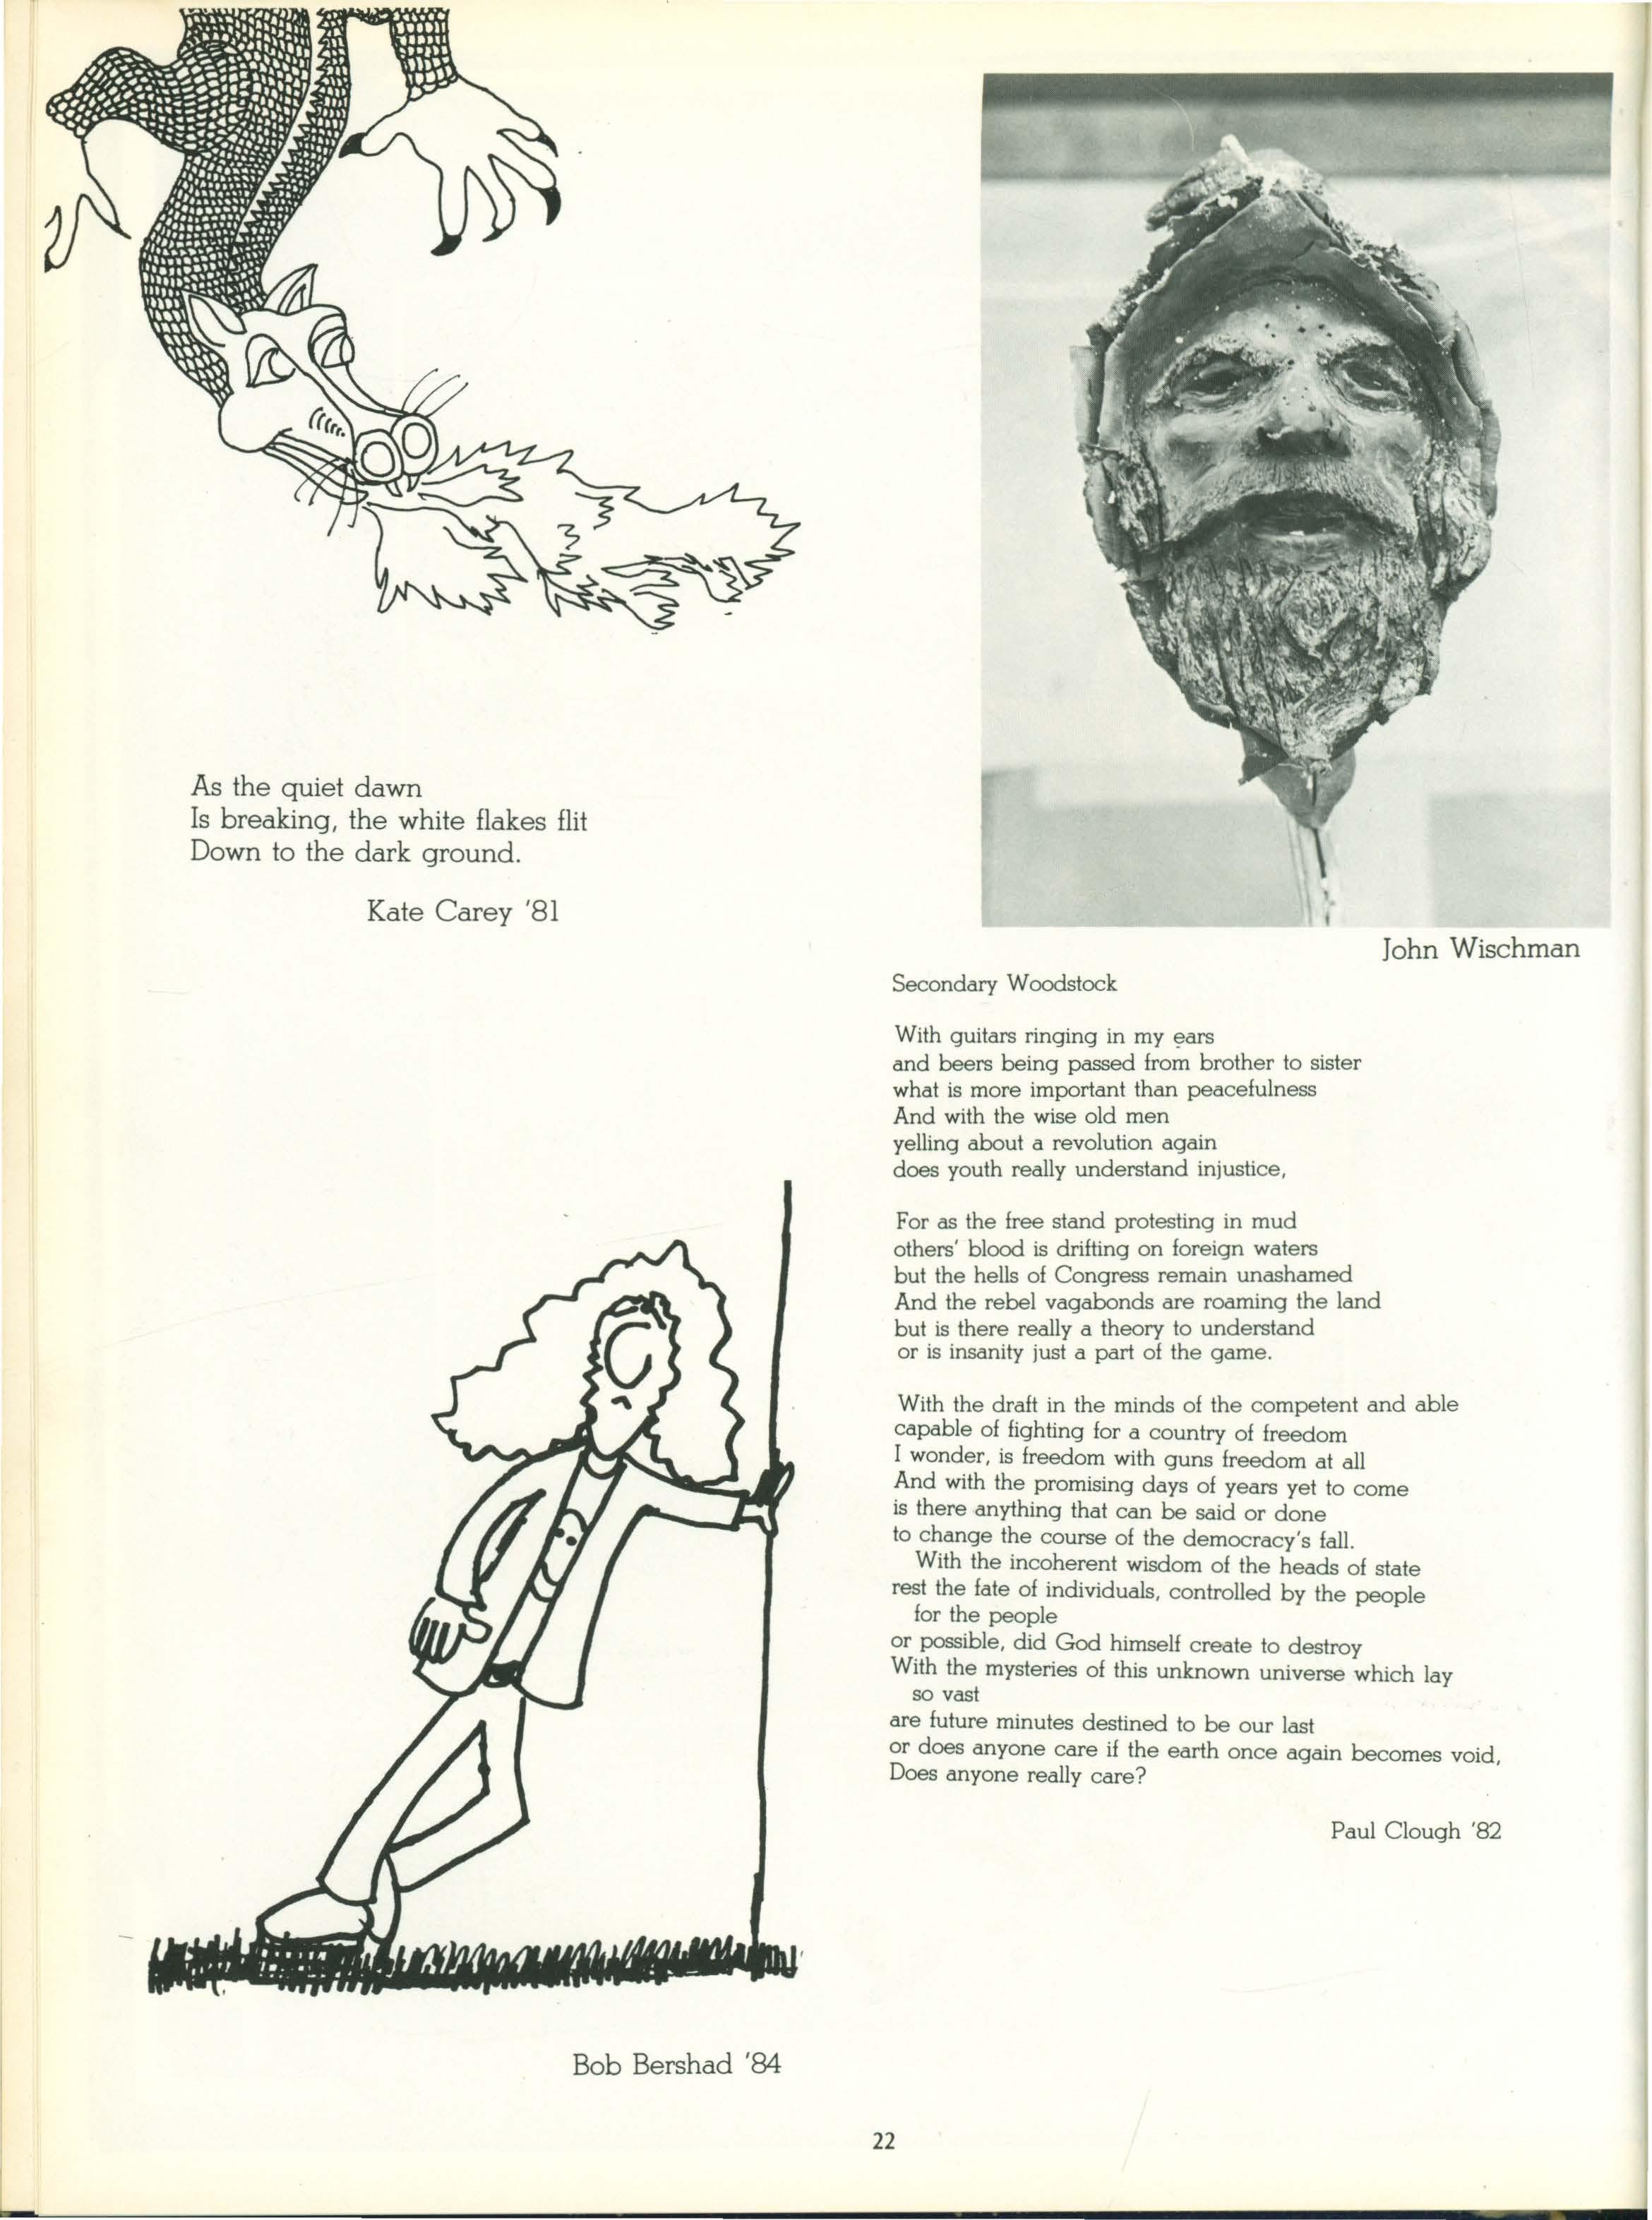 As the quiet dawn
Is breaking, the white flakes flit
Down to the dark ground.
Kate Carey '81
John Wischman
Secondary Woodstock
With guitars ringing in my ears
and beers being passed from brother to sister
what is more important than peacefulness
And with the wise old men
yelling about a revolution again
does youth really understand injustice,
For as the free stand protesting in mud
others' blood is drifting on foreign waters
but the hells of Congress remain unashamed
And the rebel vagabonds are roaming the land
but is there really a theory to understand
or is insanity just a part of the game.
With the draft in the minds of the competent and able
capable of fighting for a country of freedom
I wonder, is freedom with guns freedom at all
And with the promising days of years yet to come
is there anything that can be said or done
to change the course of the democracy's fall.
With the incoherent wisdom of the heads of state
rest the fate of individuals, controlled by the people
for the people
or possible, did God himself create to destroy
With the mysteries of this unknown universe which lay
so vast
are future minutes destined to be our last
or does anyone care if the earth once again becomes void,
Does anyone really care?
Paul Clough '82
Bob Bershad '84
22